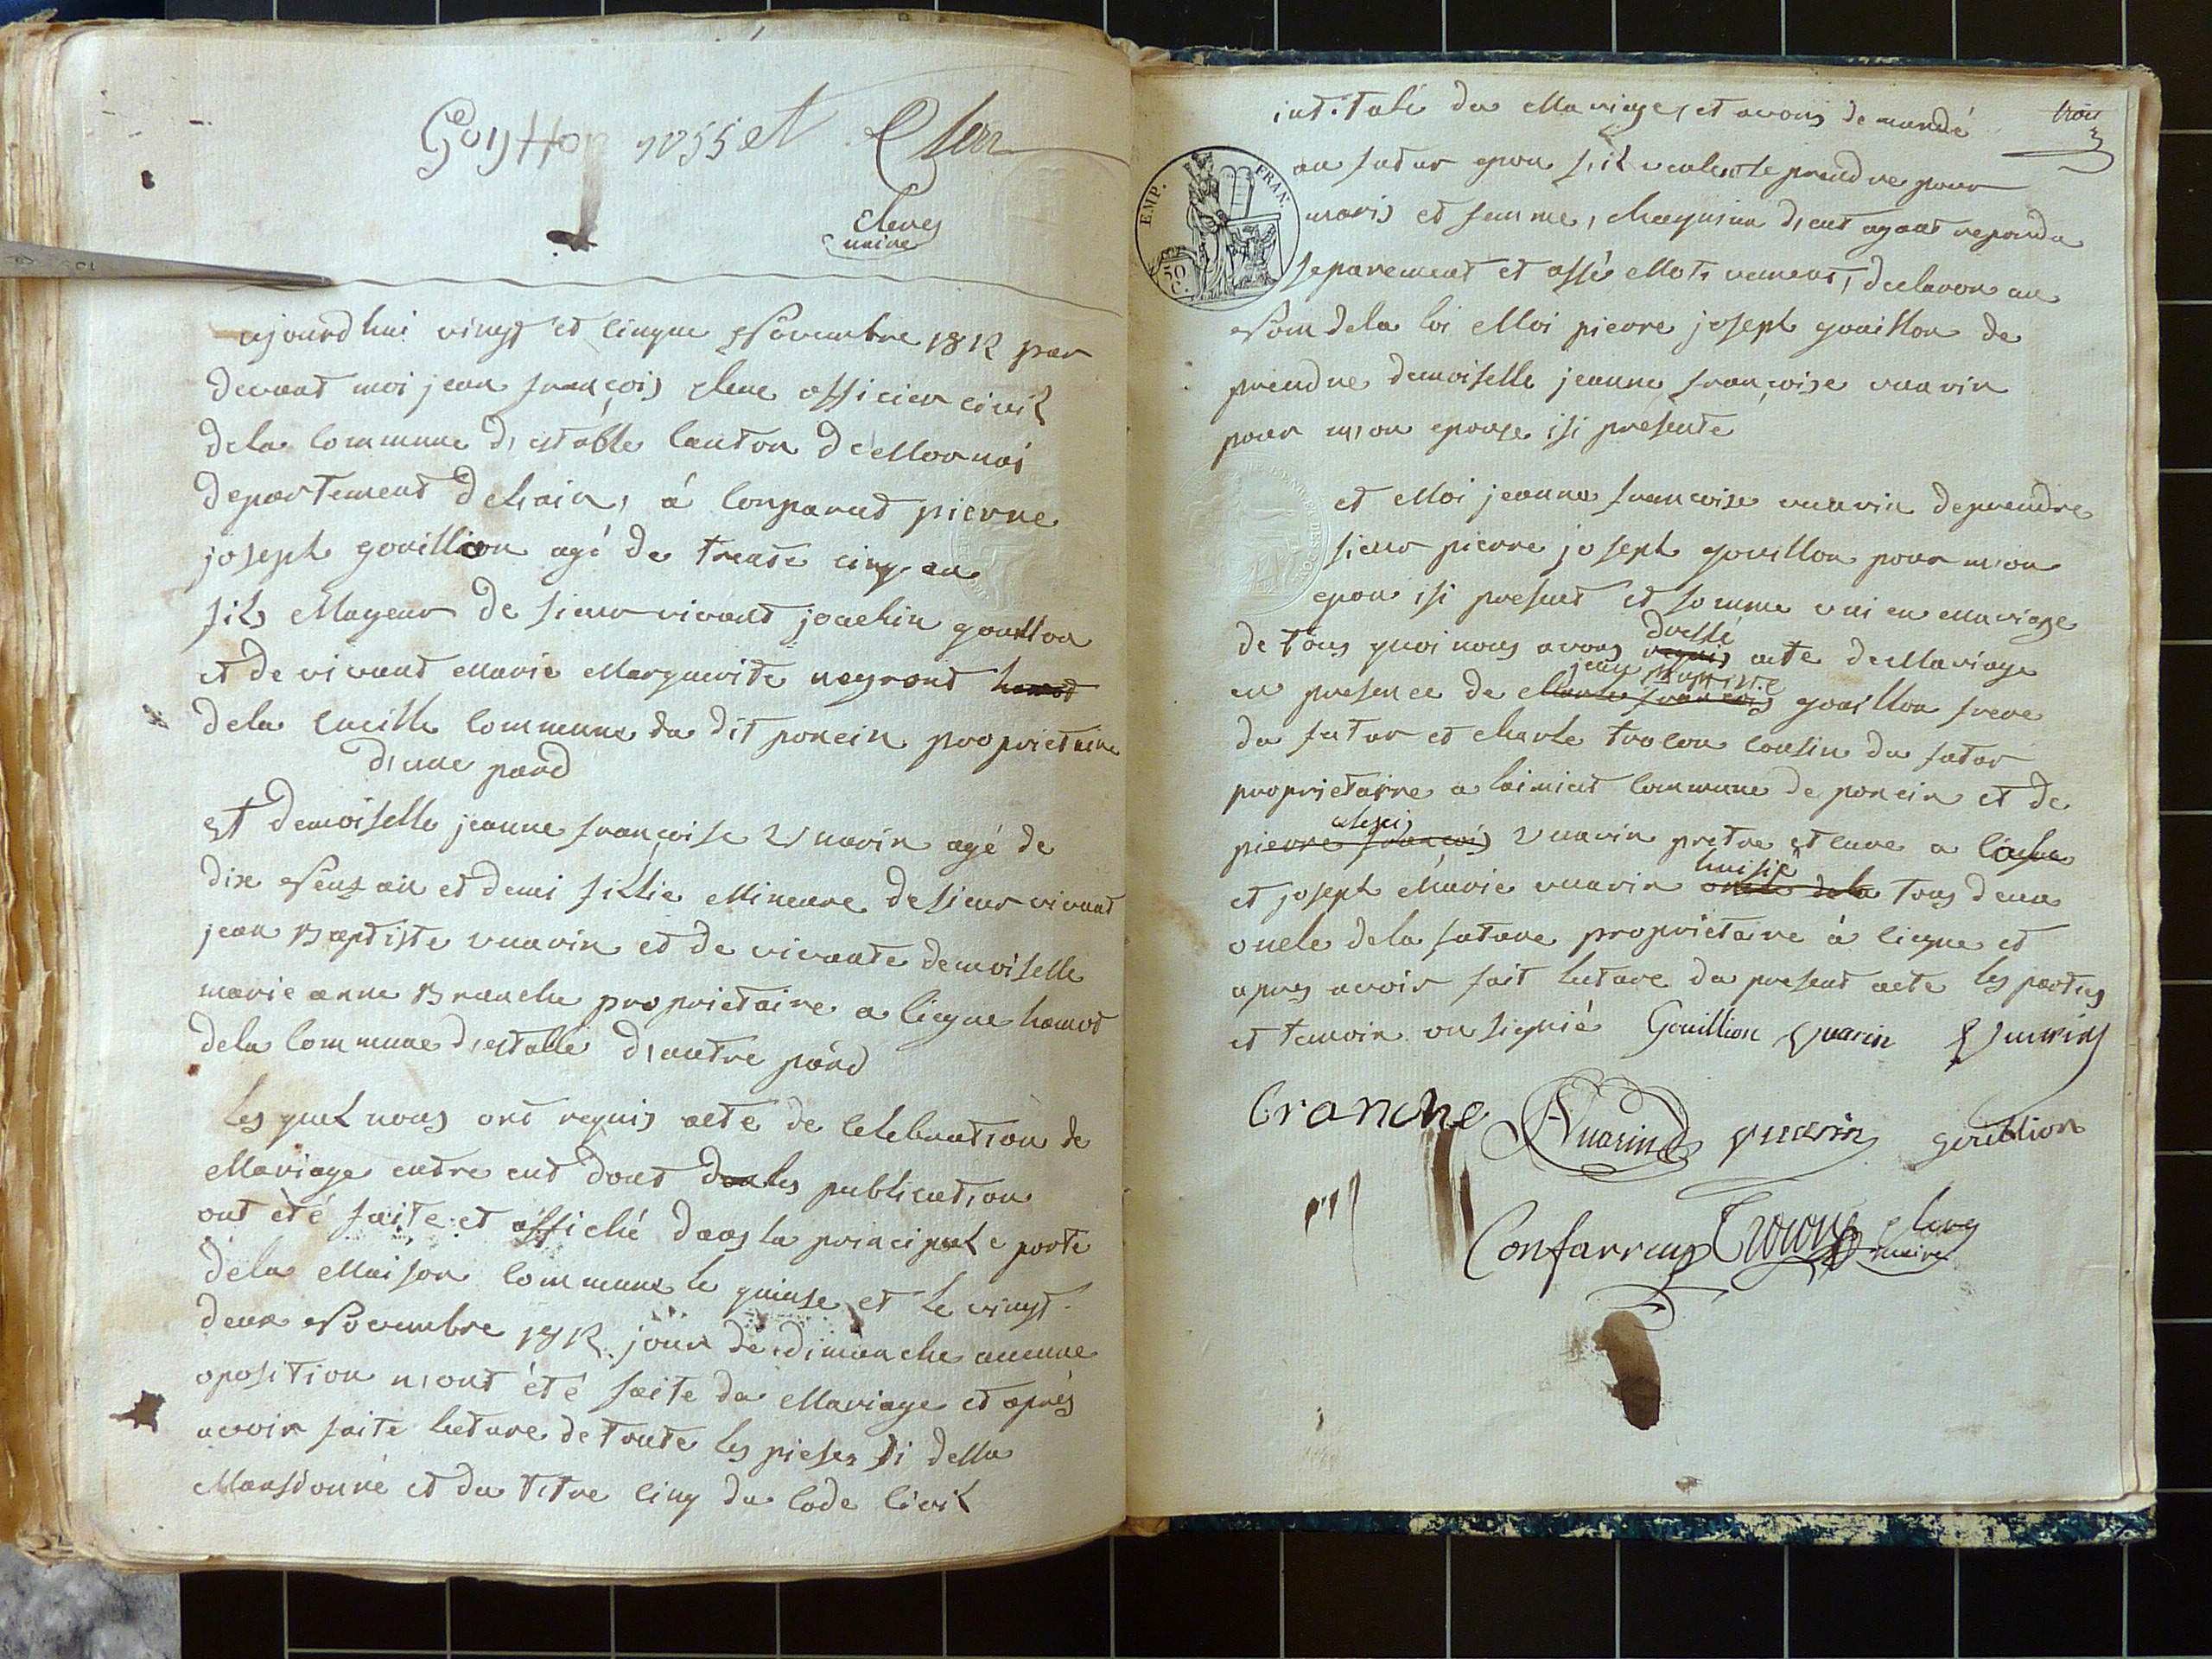 Clerc
maire
aujourdhui vingt et cinque Novembre 1812 par
devant moi jean françois clerc officier civil
dela commune d,estable canton de Mornai
departement delain, á comparud pierre
joseph gouillion agé de trente cinq an
fils Mageur de sieur vivant joachin gouillon
et de vivant marie Marguerite neyrond hamot
dela cueille commune du dit poncin proprietaire
d,une pard
et demoiselle jeanne françoise vuarin agé de
dix Neuf an et demi fillie Mineure de sieur vivant
jean Baptiste vuarin et de vivante demoiselle
marie anne Branche proprietaire a licque hamot
dela commune d,estable d,autre pard
les quel nous ont requis acte de celebration de
Mariage entre eut dont les publication
ont été faite et affiché dans la principale porte
dela Maison commune le quinse et le vingt
deux Novembre 1812 jour de dimanche aucune
oposition n,ont été faite du Mariage et aprés
avoir faite lecture de toute les pieses si dessu
Mansionné et du titre cinq du code civil
trois
3
intitulé du Mariage, et avons demandé
au futur epou s,il veulent se prendre pour
EMP. FRAN.
50 C.
maris et femme, chaquun d,eut ayant repondu
separement et affirmativement, declaron au
Nom dela loi Moi pierre joseph gouillon de
prendre demoiselle jeanne françoise vuarin
pour m,on epouse isi presente
et Moi jeanne françoise vuarin deprendre
sieur pierre joseph gouillon pour m,on
epou isi present et somme uni en mariage
dressé
de tous quoi nous avons requis acte de Mariage
jean Baptiste
en presence de claude françois gouillon frere
du futur et charle trocon cousin du futur
proprietaire a leimiat commune de poncin et de
alexis
pierre françois vuarin pretre et cure a
huisié
et joseph Marie vuarin oncle dela tous deux
oncle dela future proprietaire á licque et
apres avoir fait lecture du present acte les parties
et temoin on signié Gouillion Vuarin Vuarin
Branche Vuarin vuarin gouillion
Trocon Clerc
maire